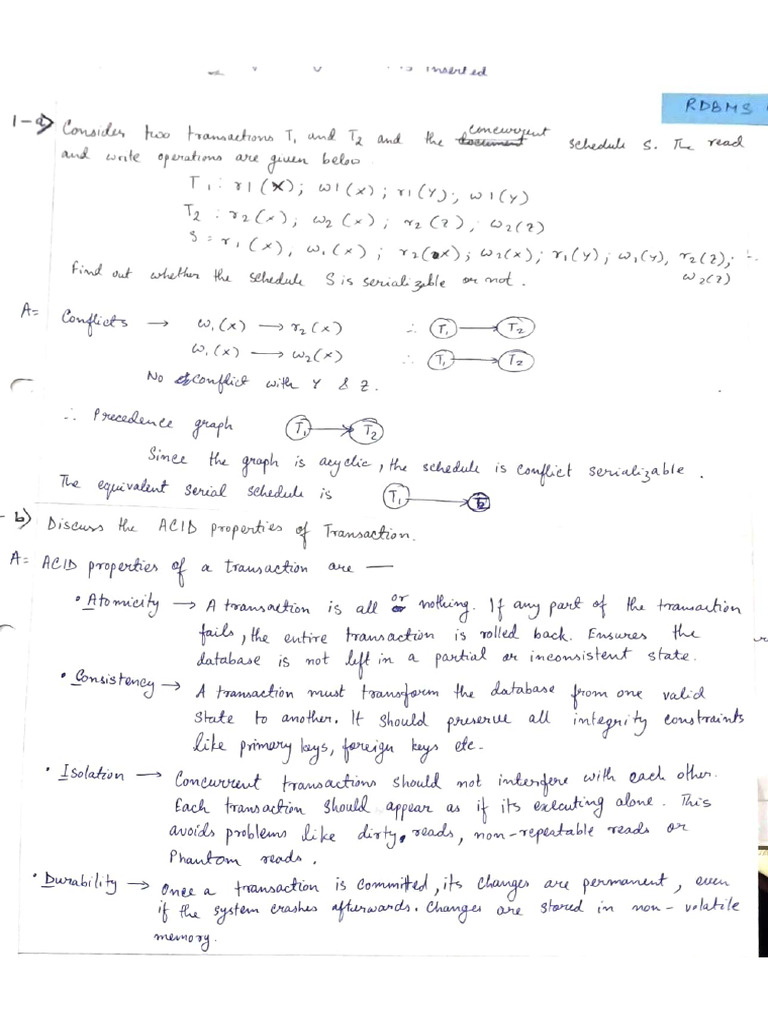 is inserted
RDBMS
1-a) Consider two transactions T1 and T2 and the concurrent schedule S. The read
and write operations are given below.
T1 : r1(x); w1(x); r1(Y); w1(Y)
T2 : r2(x); w2(x); r2(z); w2(z)
S = r1(x), w1(x); r2(x); w2(x); r1(Y); w1(Y), r2(z);
w2(z)
Find out whether the schedule S is serializable or not.
A= Conflicts → w1(x) → r2(x) ∴ T1 → T2
w1(x) → w2(x) ∴ T1 → T2
No conflict with Y & Z.
∴ Precedence graph T1 → T2
Since the graph is acyclic, the schedule is conflict serializable.
The equivalent serial schedule is T1 → T2
- b) Discuss the ACID properties of Transaction.
A= ACID properties of a transaction are —
• Atomicity → A transaction is all or nothing. If any part of the transaction
fails, the entire transaction is rolled back. Ensures the
database is not left in a partial or inconsistent state.
• Consistency → A transaction must transform the database from one valid
state to another. It should preserve all integrity constraints
like primary keys, foreign keys etc.
• Isolation → Concurrent transactions should not interfere with each other.
Each transaction should appear as if its executing alone. This
avoids problems like dirty reads, non-repeatable reads or
Phantom reads.
• Durability → Once a transaction is committed, its changes are permanent, even
if the system crashes afterwards. Changes are stored in non-volatile
memory.